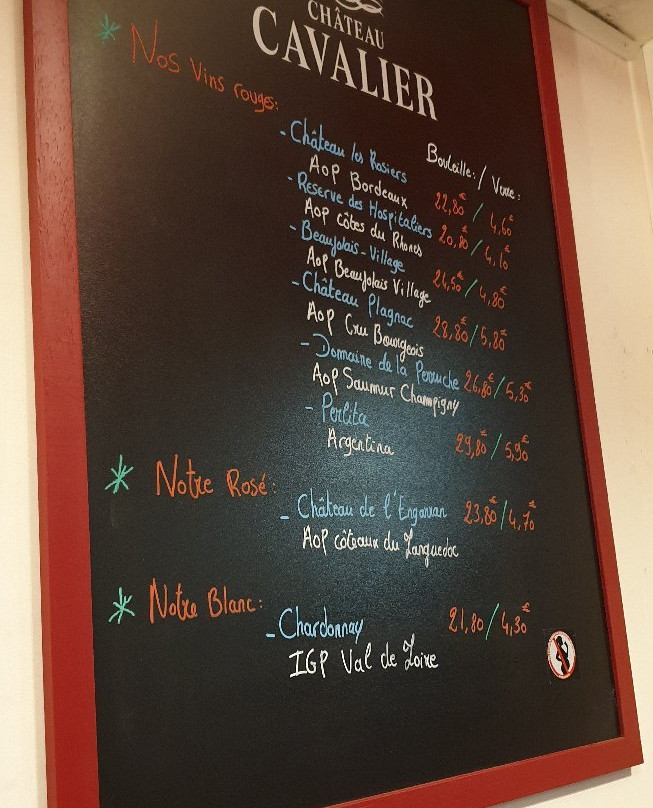 CHÂTEAU
CAVALIER
* Nos Vins rouges:
Bouteille: / Verre:
- Château les Rosiers 22,80€ / 4,60€
AOP Bordeaux
- Reserve des Hospitaliers 20,80€ / 4,10€
AOP côtes du Rhones
- Beaujolais-Village 24,50€ / 4,80€
AOP Beaujolais Village
- Château Plagnac 28,80€ / 5,80€
AOP Cru Bourgeois
- Domaine de la Perruche 26,80€ / 5,30€
AOP Saumur Champigny
- Perlita 29,80€ / 5,90€
Argentina
* Notre Rosé:
- Château de l'Engarran 23,80€ / 4,70€
AOP côteaux du Languedoc
* Notre Blanc:
- Chardonnay 21,80 / 4,30€
IGP Val de Loire